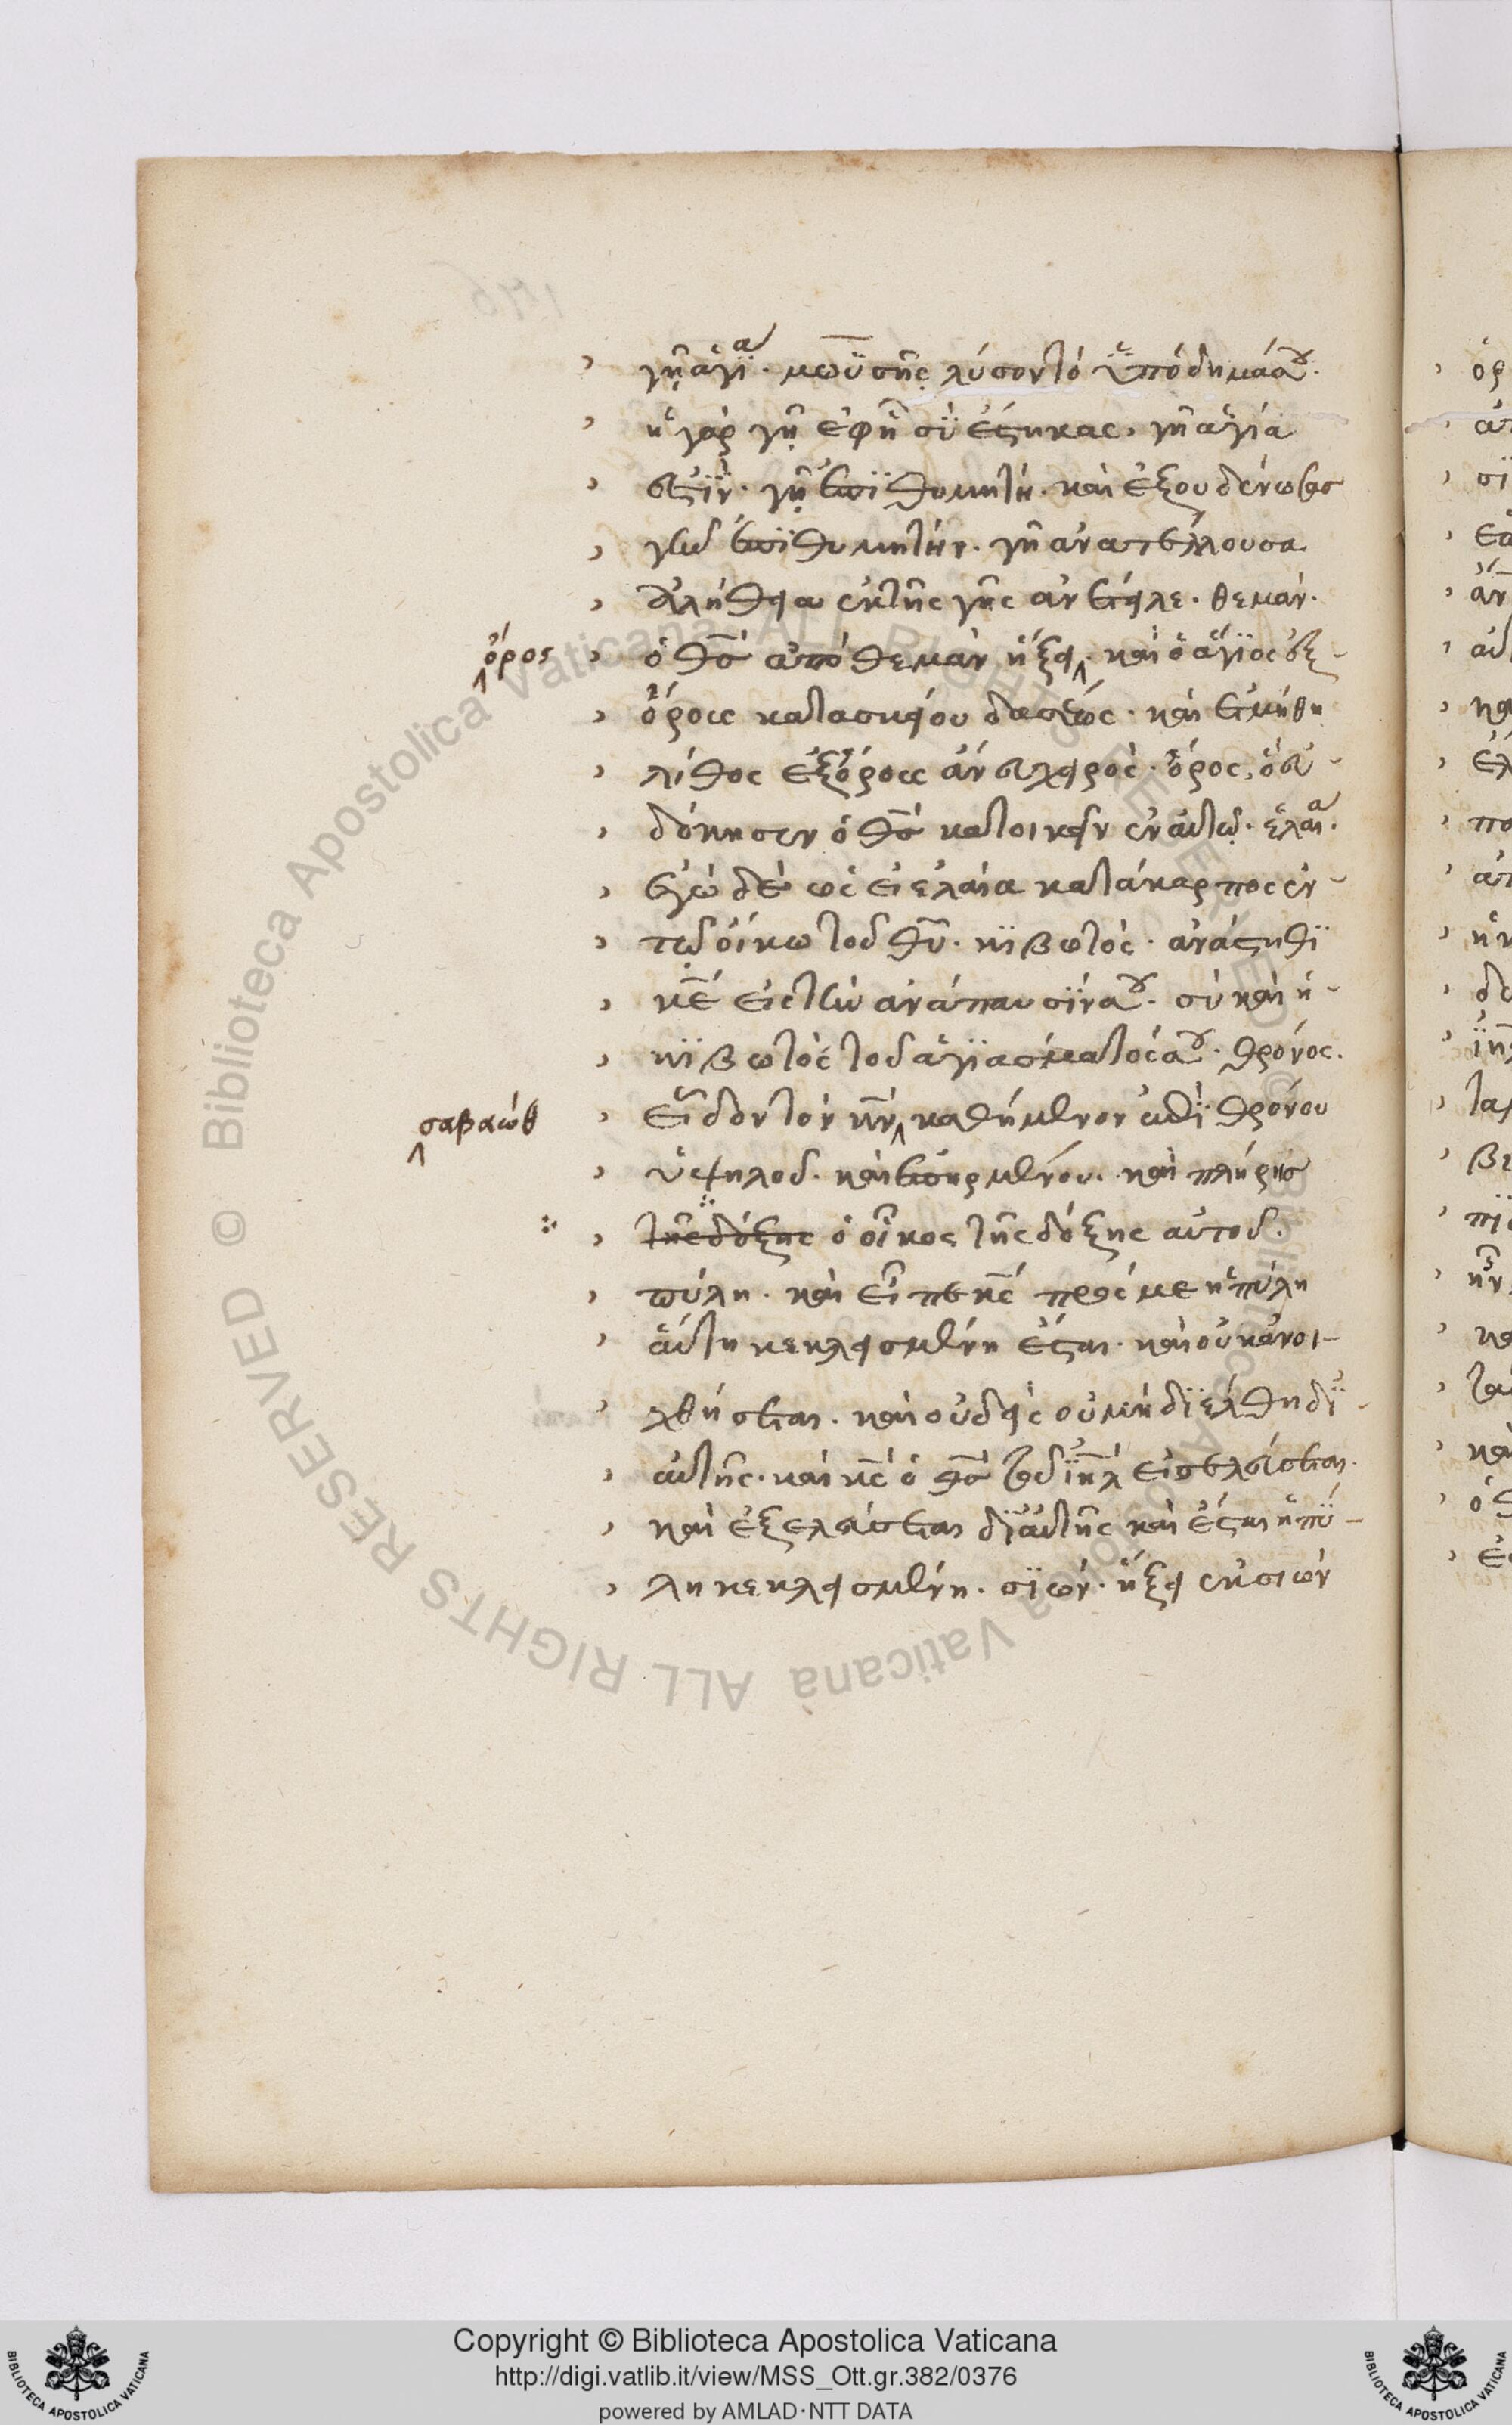 γῆ ἁγί<sup>α</sup>. μωϋσῆς λύσον τὸ ὑπόδημά σου.
ἡ γὰρ γῆ ἐφ' ἧ σὺ ἕστηκας, γῆ ἁγία
ἐστΐν. γῆ ἐπϊθυμητή. καὶ ἐξουδένωσαν
γῆν ἐπϊθυμητήν. γῆ ἀνατέλλουσα
ἀλήθεια ἐκ τῆς γῆς ἀνέτειλε. θεμάν.
ὄρος
ὁ θσ ἀπὸ θεμὰν ἥξει. καὶ ὁ ἅγϊος ἐξ
ὄρους κατασκίου δασέως. καὶ ἐτμήθη
λίθος ἐξ ὄρους ἄνευ χειρός. ὄρος, ὃ εὐ
δόκησεν ὁ θσ κατοικεῖν ἐν αὐτῷ. ἐλαία.
ἐγὼ δὲ ὡσεὶ ἐλαία κατάκαρπος ἐν
τῷ οἴκω τοῦ θυ. κϊβωτός. ἀνάστηθϊ
κε εἰς τὴν ἀνάπαυσΐν σου. σὺ καὶ ἡ
κϊβωτὸς τοῦ ἁγϊάσματός σου. θρόνος.
σαβαώθ
εἶδον τὸν κν καθήμενον ἐπὶ θρόνου
ὑψηλοῦ. καὶ ἐπηρμένου. καὶ πλήρης
τῆς δόξης ὁ οἶκος τῆς δόξης αὐτοῦ.
πύλη. καὶ εἶπε κς πρός με ἡ πύλη
αὕτη κεκλεισμένη ἔσται. καὶ οὐκ ἀνοι-
χθήσεται. καὶ οὐδεὶς οὐ μὴ δϊέλθη δϊ
αὐτῆς. καὶ κς ὁ θσ τοῦ ϊηλ εἰσελεύσεται.
καὶ ἐξελεύσεται δϊ αὐτῆς καὶ ἔσται ἡ πύ-
λη κεκλεισμένη. σϊών. ἥξει ἐκ σιὼν
Copyright © Biblioteca Apostolica Vaticana
http://digi.vatlib.it/view/MSS_Ott.gr.382/0376
powered by AMLAD·NTT DATA